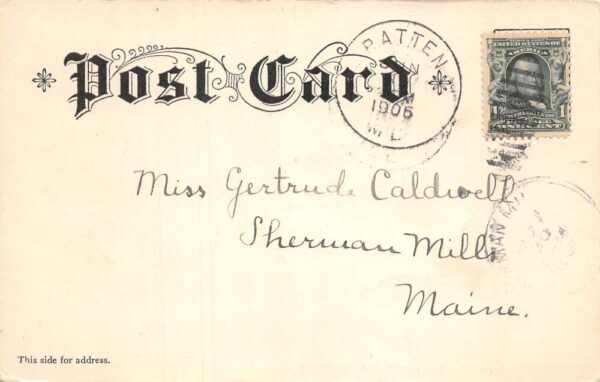 Post Card
PATTEN
JUN
1906
ME.
UNITED STATES OF
AMERICA
1 1
ONE CENT
Miss Gertrude Caldwell
Sherman Mills
Maine.
This side for address.